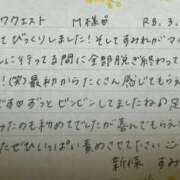 クエスト M様 R8.3.
てびっくりしました!そしてすみれがマイ
しに行ってる間に全部脱ぎ終わって
!(笑)最初からたくさん感じてもらえ
です ずっとビンビンしてましたね の足
も初めてでしたが喜んでもらえ
ぜひいっぱい責めさせてださい
新條 すみ